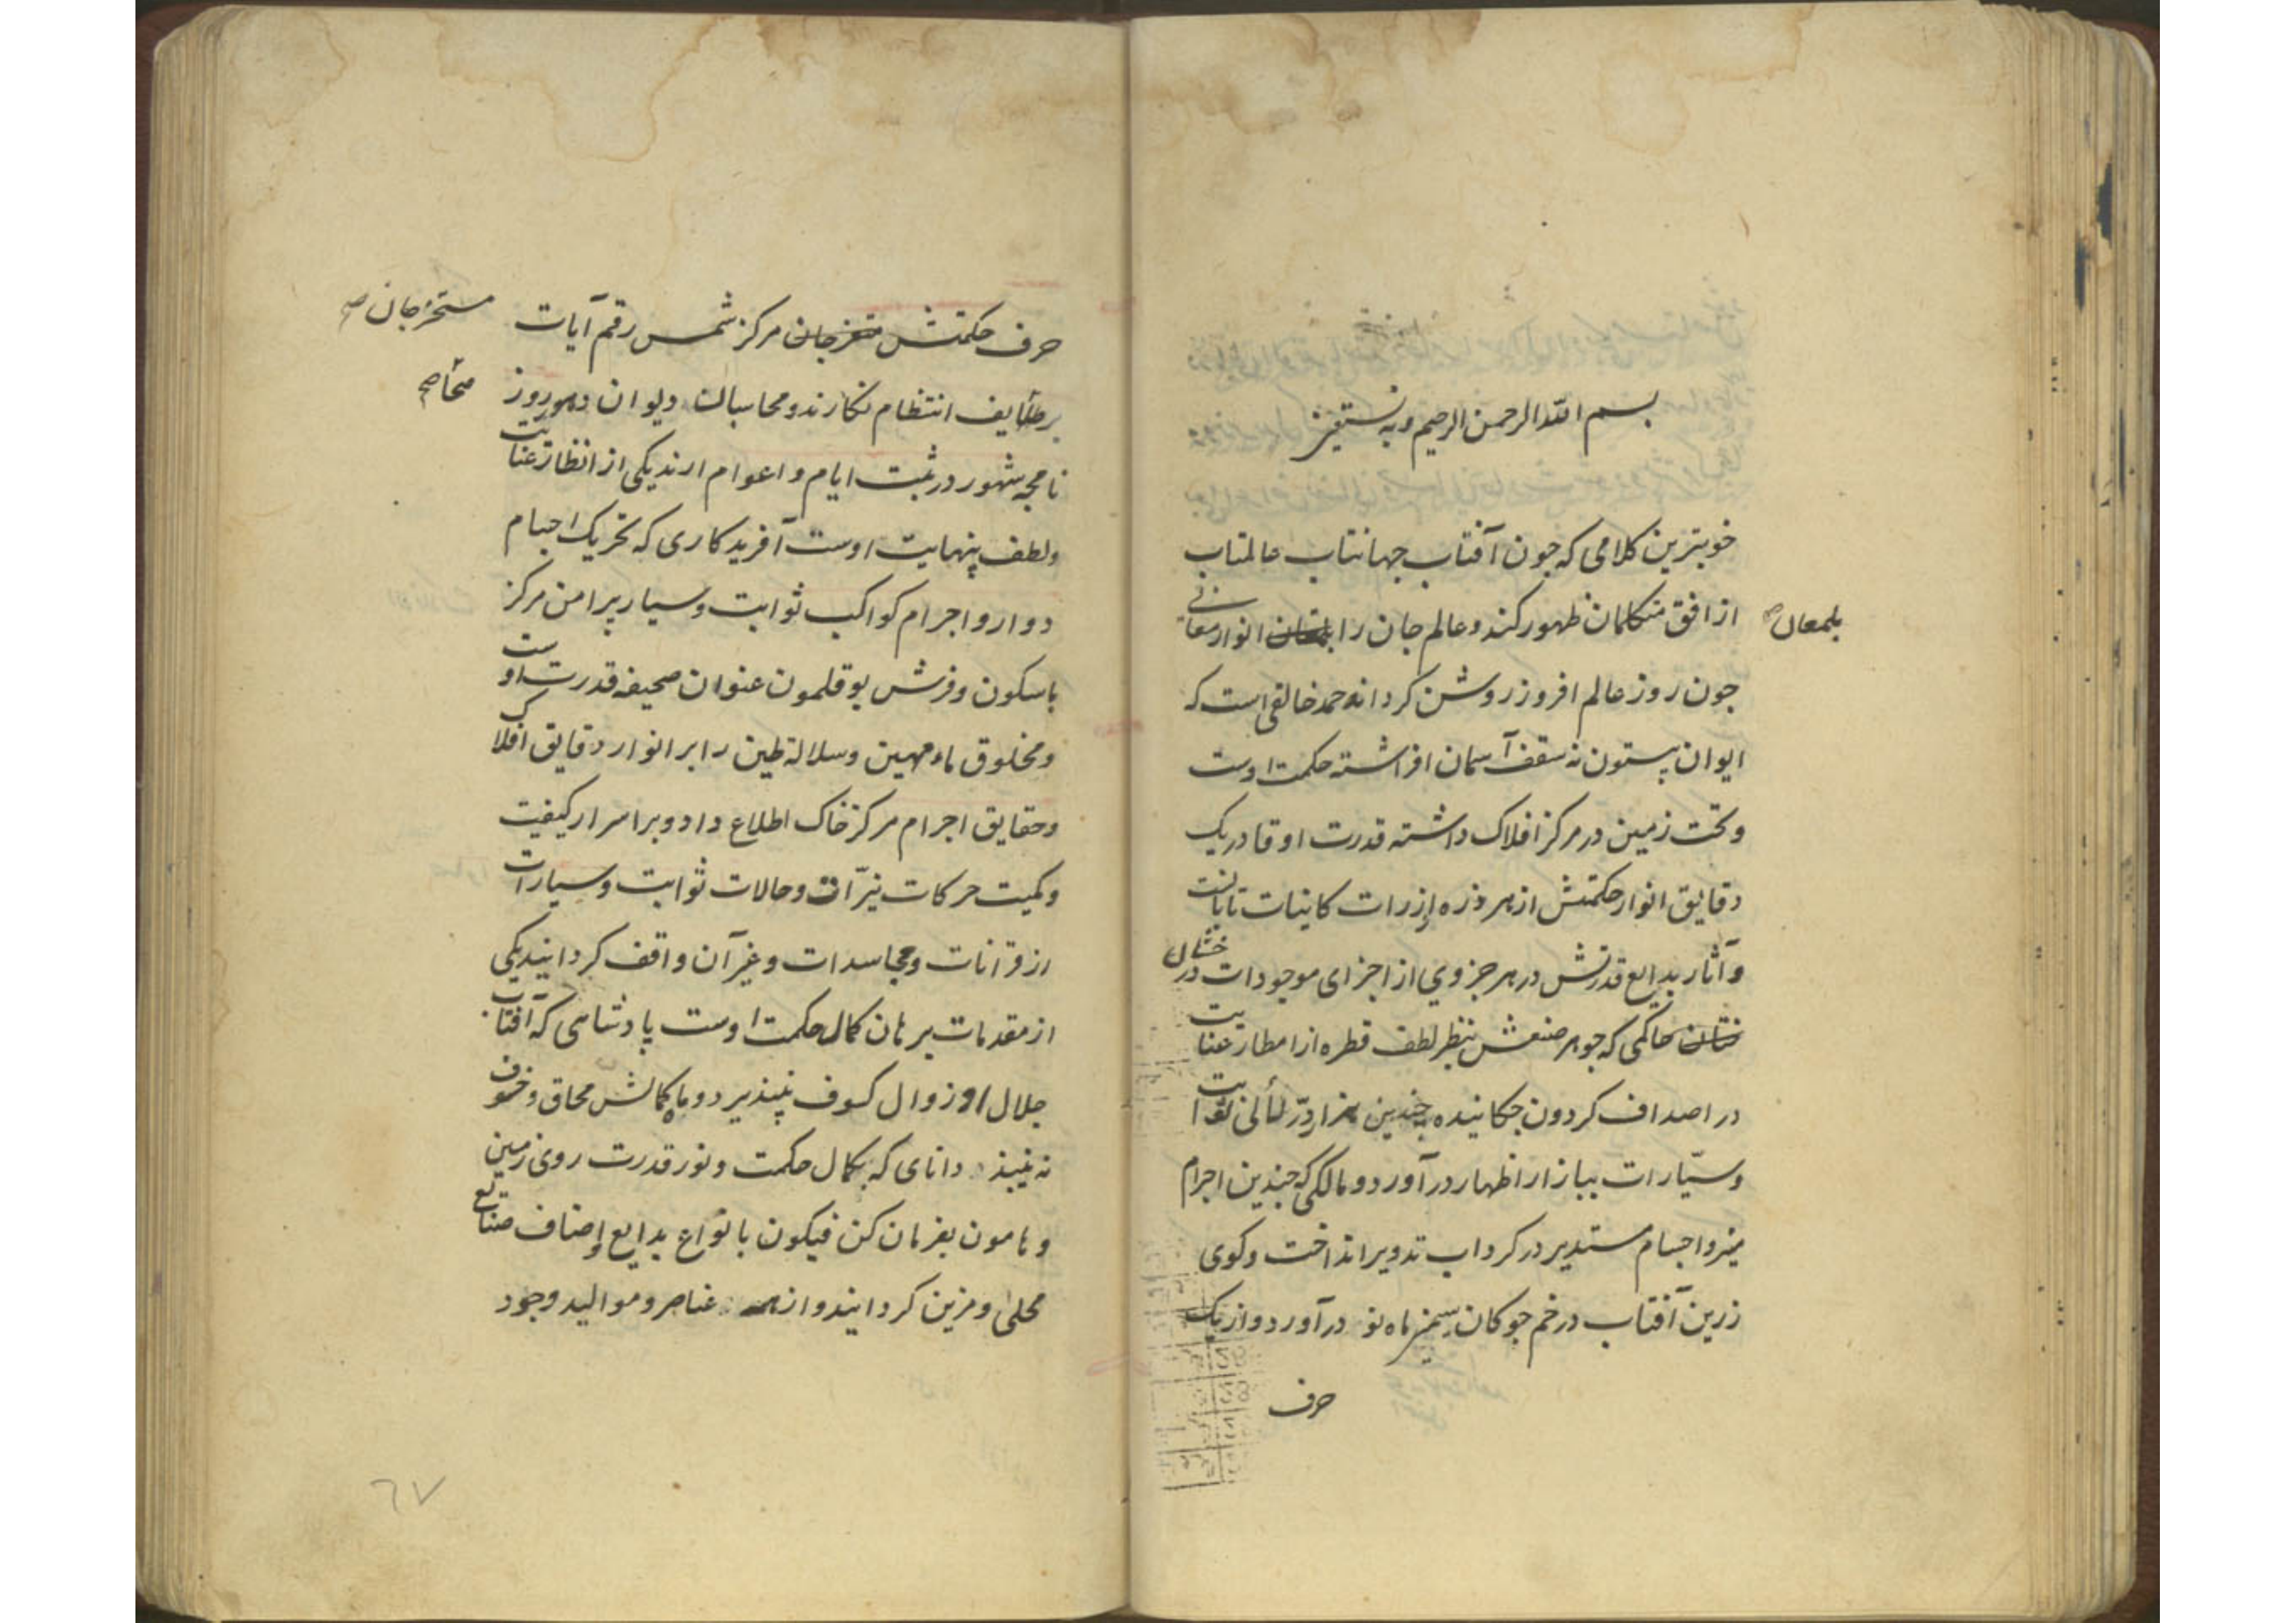 بسم الله الرحمن الرحیم وبه نستعین
خوبترین کلامی که جون آفتاب جهانتاب عالمتاب
از افق متکلمان ظهور کند و عالم جان را بلمعان انوار معانی
بلمعان صح
جون روز عالم افروز روشن کرداند حمد خالقی است که
ایوان بیستون نه سقف آسمان افراشته حکمت اوست
وتخت زمین در مرکز افلاک داشته قدرت او قادریک
دقایق انوار حکمتش از هر ذره از ذرات کاینات تابانست
وآثار بدایع قدرتش در هر جزوی از اجزای موجودات درخشان
حاکمی که جوهر صنعش بنظر لطف قطره از امطار عنایت
در اصداف کردون جکانیده جندین هزار درّ لئالی ثوابت
وسیّارات ببازار اظهار در آورد و مالکی که جندین اجرام
منیر و اجسام مستدیر در کرداب تدویر انداخت وکوی
زرین آفتاب در خم جوکان سیمین ماه نو در آورد و از یک
حرف
حرف حکمتش مستخرجان مرکز شمس رقم آیات
مستخرجان صح
بر طایف انتظام نکارند و محاسبان دیوان دهور روز
نامجه شهور در ثبت ایام و اعوام ارند یکی از انظار عنایت
ولطف بینهایت اوست آفریدکاری که تحریک اجسام
دوار و اجرام کواکب ثوابت وسیار پیرامن مرکز
باسکون وفرش بوقلمون عنوان صحیفه قدرت اوست
ومخلوق ماء مهین وسلالة طین را بر انوار دقایق افلاک
وحقایق اجرام مرکز خاک اطلاع داد وبر اسرار کیفیت
وکمیت حرکات نیّرات وحالات ثوابت وسیارات
از قرانات ومجاسدات وغیر آن واقف کردانید یکی
از مقدمات برهان کمال حکمت اوست پادشاهی که آفتاب
جلال او زوال کسوف نپذیرد و ماه کمالش محاق وخسوف
نه بیند دانای که بکمال حکمت ونور قدرت روی زمین
وهامون بفرمان کن فیکون بانواع بدایع واصناف صنایع
محلی ومزین کردانید و از عناصر وموالید وجود
٦٧